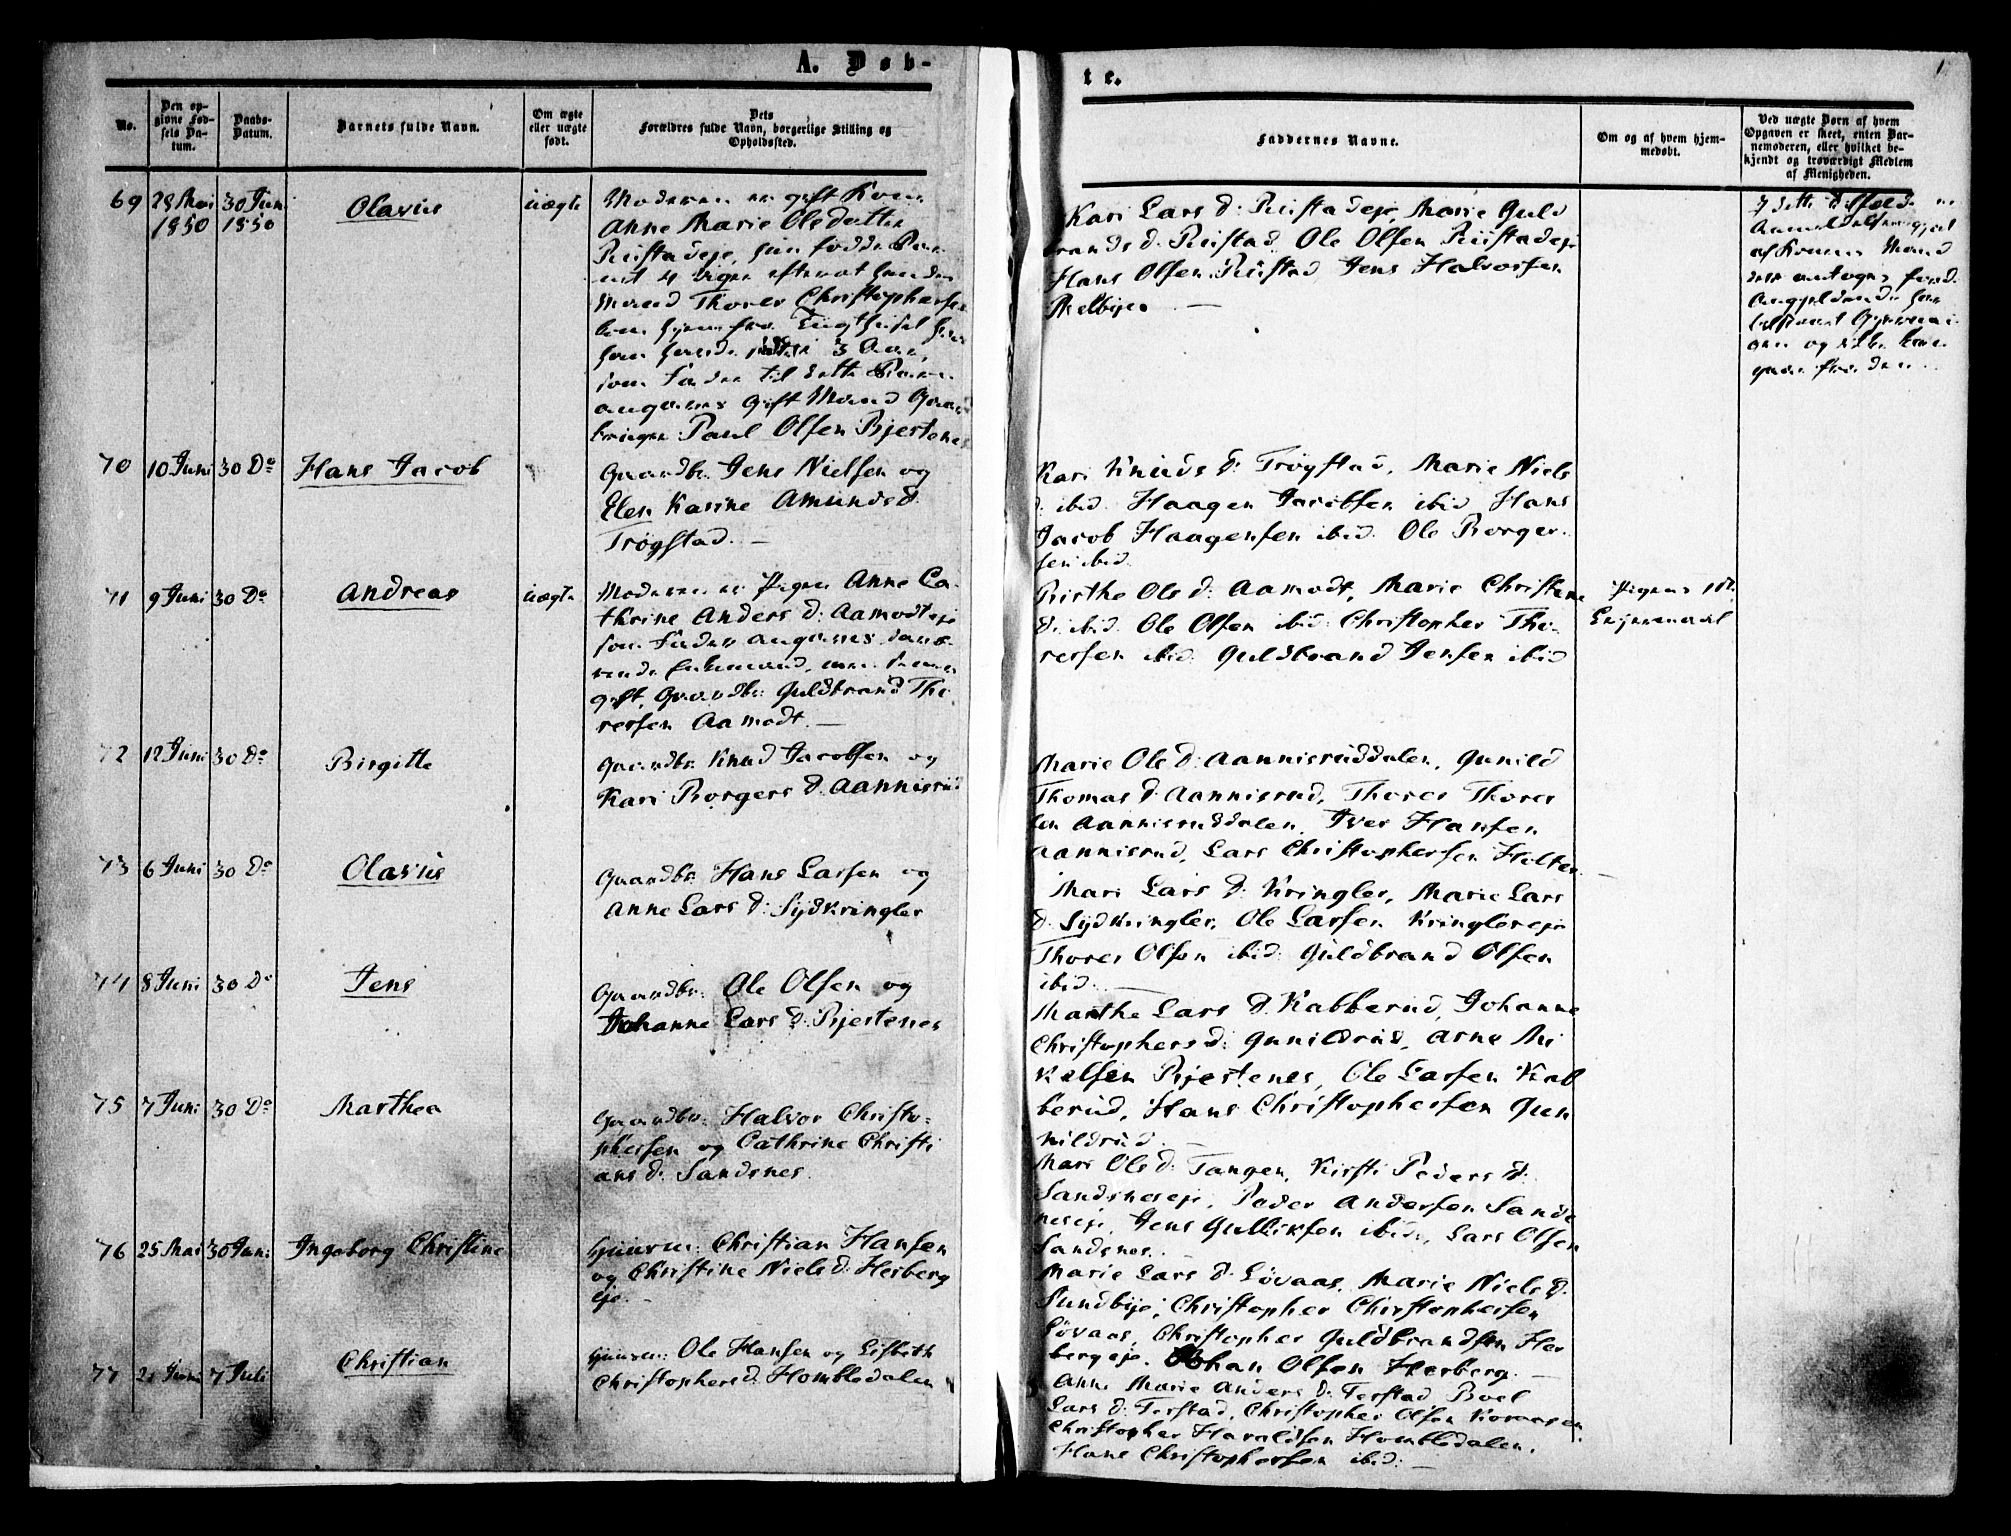 A. Døb-
te.
No.
Den op-
givne Fød-
sels Da-
tum.
Daabs-
Datum.
Barnets fulde Navn.
Om ægte
eller uægte
født.
Dets
Forældres fulde Navn, borgerlige Stilling og
Opholdssted.
Faddernes Navne.
Om og af hvem hjem-
medøbt.
Ved uægte Børn af hvem
Opgaven er skeet, enten Bar-
nemoderen, eller hvilket be-
kjendt og troværdigt Medlem
af Menigheden.
69 29 Mai 30 Juni Olavus uægte
1850 1850
Moderen er gift Kone
Anne Marie Olsdatter
Rustadeje, hun fødte
Mand Thorer Christophersen
3 Aar,
som Fader til dette Barn
angives gift Mand
Paul Olsen Bjertenes
Kari Lars d: Rustadeje, Marie Guld
brands d. Rustad, Ole Olsen Rustadeje
Hans Olsen Rustad, Jens Halvorsen
Melbye
af Konens Mand
70 10 Juni 30 Do Hans Jacob
Gaardbr. Jens Nielsen og
Elen Karine Amunds d.
Trøgstad. —
Kari Knuds d: Trøgstad, Marie Niels
d. ibid. Haagen Jacobsen ibid Hans
Jacob Haagensen ibid. Ole Borger-
sen ibid.
71 9 Juni 30 Do Andreas uægte
Moderen er Pigen Anne Ca-
thrine Anders d: Aamodteje
som Fader angives
gift, Gaardbr: Guldbrand Tho-
resen Aamodt. —
Birthe Ols d: Aamodt, Marie Christens
d: ibid. Ole Olsen ibid: Christopher Tho-
resen ibid: Guldbrand Jensen ibid
72 12 Juni 30 Do Birgitte
Gaardbr. Knud Jacobsen og
Kari Borgers d. Aannisrud
Marie Ols d: Aannisruddalen, Gunild
Thomas d. Aannisrud, Thorer Thorer
sen Aannisruddalen, Iver Hansen
Aannisrud, Lars Christophersen Holter
73 6 Juni 30 Do Olavus
Gaardbr. Hans Larsen og
Anne Lars d: Sydkringler
Mari Lars d: Kringler, Marie Lars
d. Sydkringler, Ole Larsen Kringlereje
Thorer Olsen ibid: Guldbrand Olsen
ibid.
74 8 Juni 30 Do Jens
Gaardbr. Ole Olsen og
Johanne Lars d: Bjertenes
Marthe Lars d. Kabberud, Johanne
Christophers d: Gunildrud, Arne Mi
kelsen Bjertenes, Ole Larsen Kab
berud, Hans Christophersen Gun
nildrud. —
75 7 Juni 30 Do Marthea
Gaardbr: Halvor Christo-
phersen og Cathrine Christi
ans d. Sandsnes.
Mari Ols d: Tangen, Kirsti Peders d.
Sandsneseje, Peder Andersen Sands
neseje, Jens Gulliksen ibid., Lars Olsen
Sandsnes.
76 25 Mai 30 Juni Ingeborg Christine
Christian Hansen
og Christine Niels d: Herberg
eje. —
Marie Lars d. Løvaas, Marie Niels d.
Sundbye, Christopher Christophersen
Løvaas, Christopher Guldbrandsen Her
bergeje. Johan Olsen Herberg. —
77 21 Juni 7 Juli Christian
Ole Hansen og Lisbeth
Christophers d. Hombledalen
Anne Marie Anders d: Terstad Boel
Lars d: Terstad, Christopher Olsen
Christopher Haraldsen Hombledalen.
Hans Christophersen ibid: —